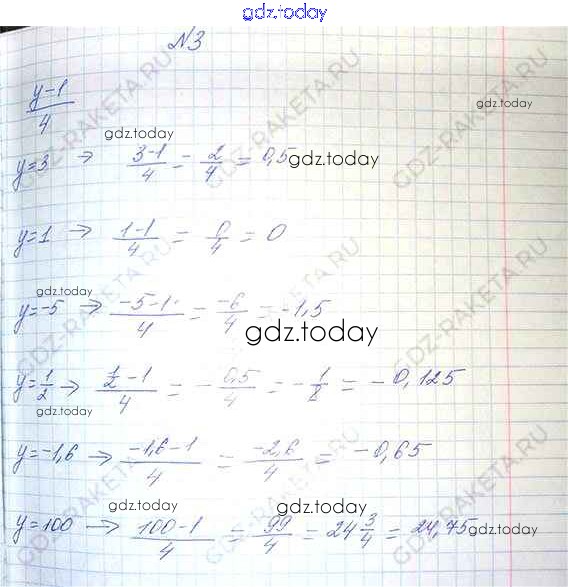 gdz.today
№3
(y-1)/4
y=3 → (3-1)/4 = 2/4 = 0,5
y=1 → (1-1)/4 = 0/4 = 0
y=-5 → (-5-1)/4 = -6/4 = -1,5
y=1/2 → (1/2 -1)/4 = -0,5/4 = -1/8 = -0,125
y=-1,6 → (-1,6-1)/4 = -2,6/4 = -0,65
y=100 → (100-1)/4 = 99/4 = 24 3/4 = 24,75
gdz.today
gdz.today
gdz.today
gdz.today
gdz.today
gdz.today
gdz.today
gdz.today
gdz.today
gdz.today
GDZ-RAKETA.RU
GDZ-RAKETA.RU
GDZ-RAKETA.RU
GDZ-RAKETA.RU
GDZ-RAKETA.RU
GDZ-RAKETA.RU